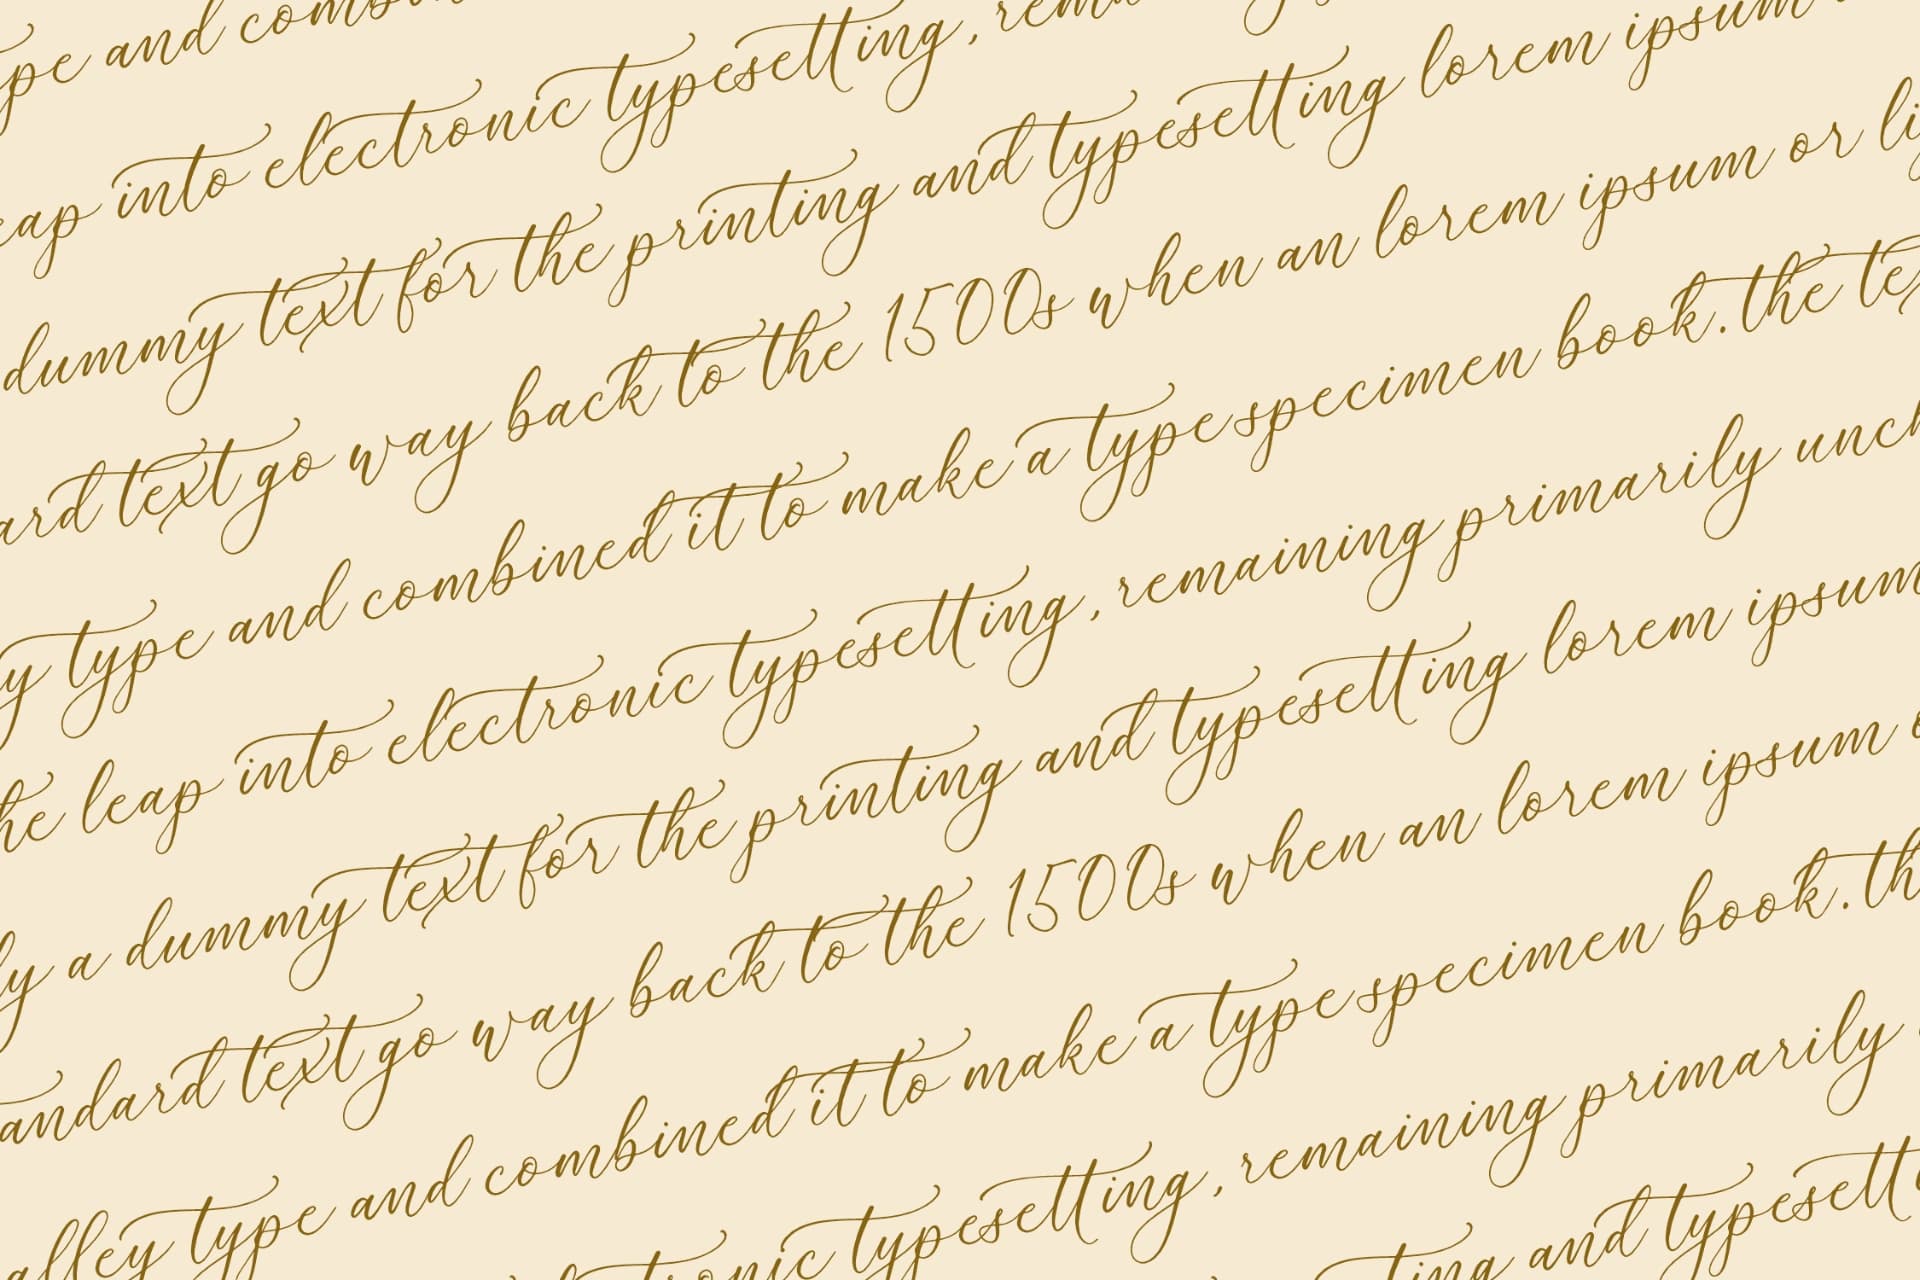 type and combin
leap into electronic typesetting, rema
dummy text for the printing and typesetting lorem ipsum
ard text go way back to the 1500s when an lorem ipsum or li
y type and combined it to make a type specimen book. the te
he leap into electronic typesetting, remaining primarily unch
ly a dummy text for the printing and typesetting lorem ipsum
andard text go way back to the 1500s when an lorem ipsum o
alley type and combined it to make a type specimen book. th
tronic typesetting, remaining primarily
ting and typesetti